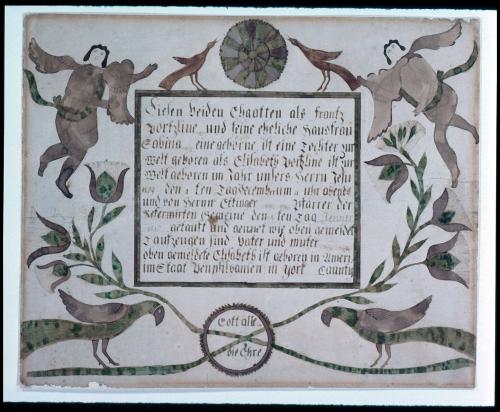 Diesen beiden Ehgatten als frantz
Portzline und seine eheliche Hausfrau
Sabina eine geborne ist eine Tochter zur
Welt geboren als Elisabeth Portzline ist zur
Welt geboren im Jahr unsers Herrn Jesu
den ten Tag Decembrum uhr abents
und von Herrn Ettinger Pfarrer der
Reformirten Gemeine den ten Tag
getauft und genant wie oben gemeldet
Taufzeugen sind Vater und muter
oben gemeldete Elisabeth ist geboren in Ameri
im Staat Pensylvanien in York County
Gott alle
die Ehre